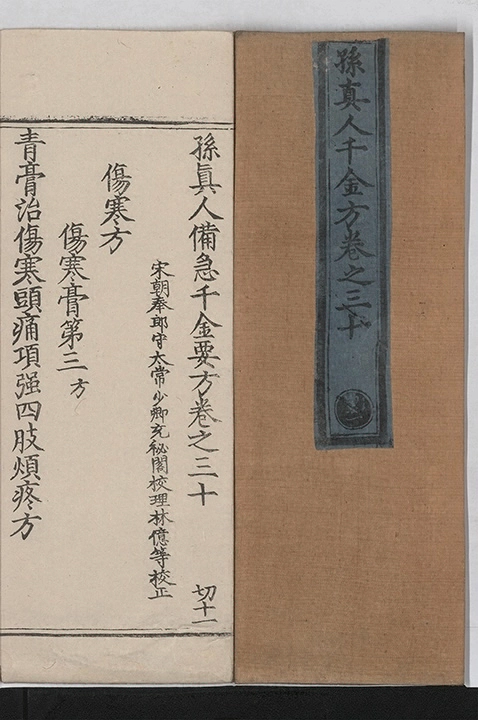 孫真人千金方卷之三十
孫眞人備急千金要方卷之三十
切十一
宋朝奉郎守太常少卿充秘閣校理林億等校正
傷寒方
傷寒膏第三
方
青膏治傷寒頭痛項强四肢煩疼方